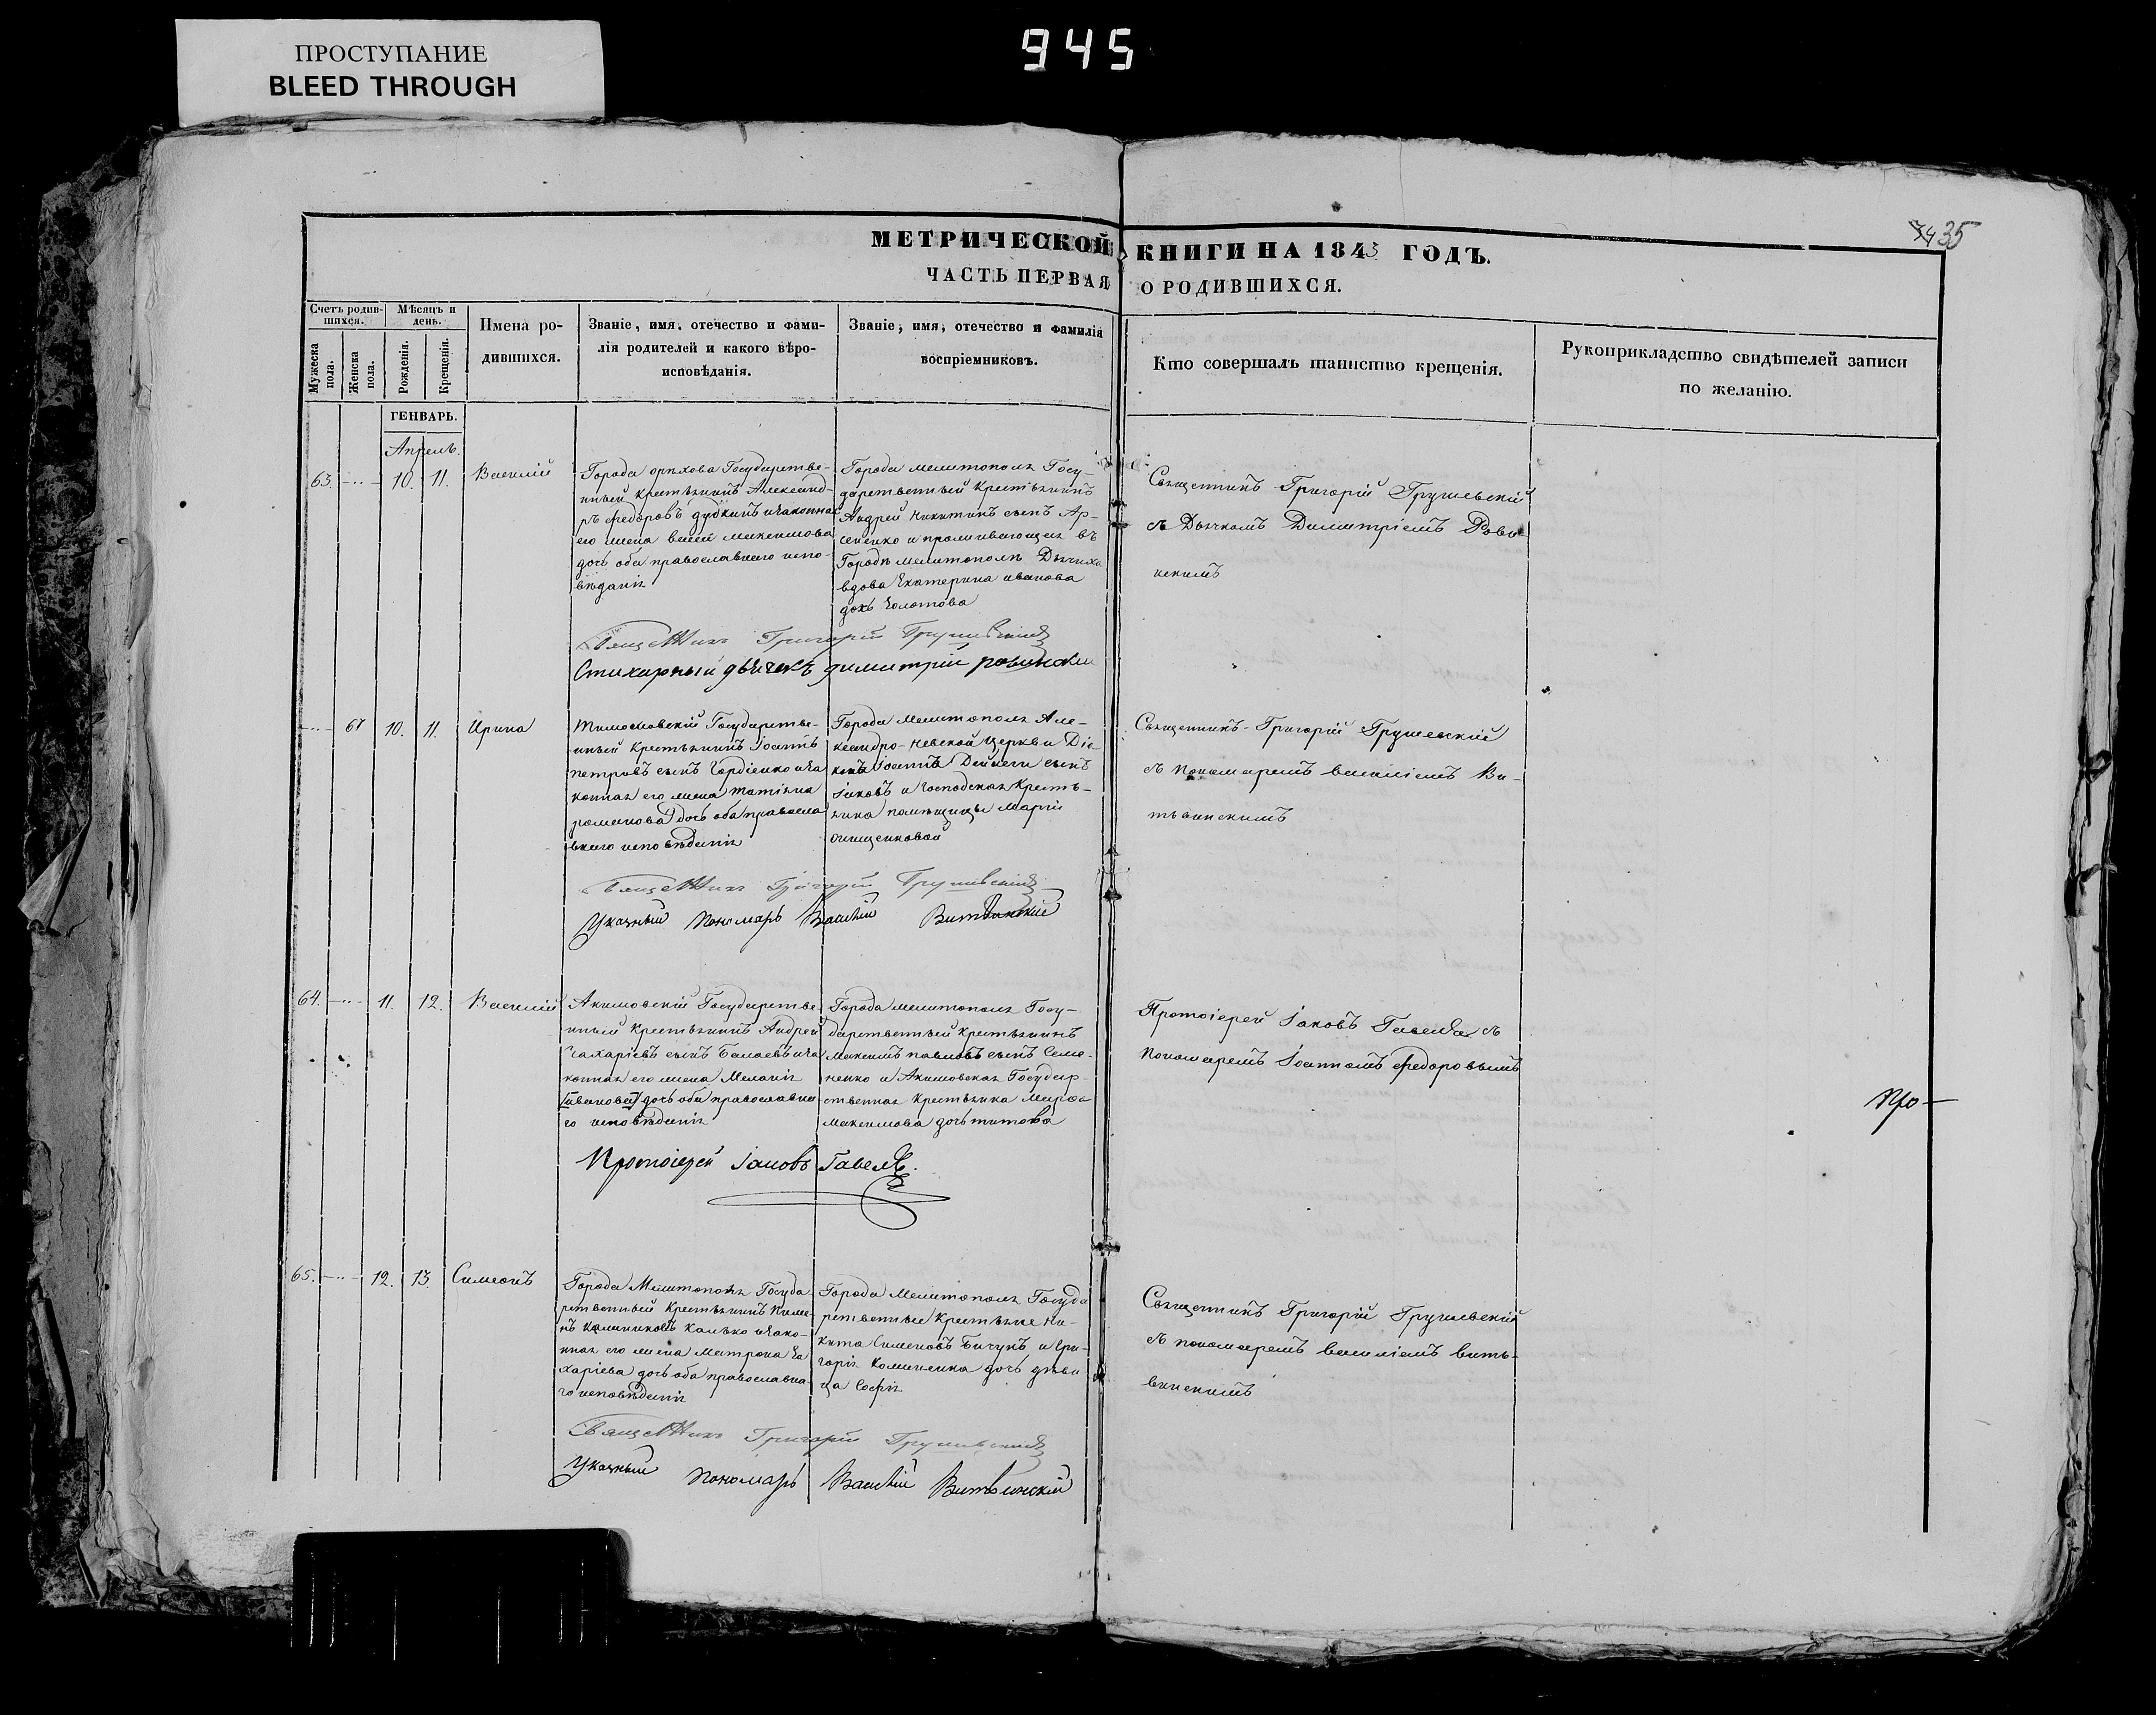 ПРОСТУПАНИЕ
BLEED THROUGH
945
35
МЕТРИЧЕСКОЙ КНИГИ НА 1843 ГОДЪ.
ЧАСТЬ ПЕРВАЯ О РОДИВШИХСЯ.
Счетъ родив-
шихся.
Мужеска
пола.
Женска
пола.
Мѣсяцъ и
день.
Рожденія.
Крещенія.
Имена ро-
дившихся.
Званіе, имя, отечество и фами-
лія родителей и какого вѣро-
исповѣданія.
Званіе, имя, отечество и фамилія
воспріемниковъ.
Кто совершалъ таинство крещенія.
Рукоприкладство свидѣтелей записи
по желанію.
ГЕНВАРЬ.
Апрель.
63. 10. 11. Василій
Города орѣхова Государстве-
нный крестьянинъ Александ-
ръ федоровъ дудкинъ изаконная
его жена максимова
дочь оба православнаго испо-
вѣданія
Города мелитополя Госу-
дарственный Крестьянинъ
Андрей никитинъ сынъ Ар-
сененко и проживающая въ
Городѣ мелитополѣ Дьячиха
вдова Екатерина иванова
дочь
Священникъ Григорій Грушевскій
съ Дьячкомъ Димитріемъ Рови-
нскимъ
Священникъ Григорій Грушевскій
Стихарный дьячекъ димитрій ровински
67 10. 11. Ирина
Тимошовскій Государстве-
нный Крестьянинъ Іоаннъ
петровъ сынъ Гордіенко иза
конная его жена татіяна
романова дочь оба правосла
внаго исповѣданія
Города Мелитополя Але-
ксандро-невской Церкви Діа
конъ Іоаннъ сынъ
іаковъ и Господская Кресть-
янка помѣщицы Маріи
онищенковой
Священникъ Григорій Грушевскій
съ пономаремъ василіемъ Ви-
твинскимъ
Священникъ Григорій Грушевскій
Указный Пономарь Василій Витвинскій
64. 11. 12. Василій
Акимовскій Государстве-
нный Крестьянинъ Андрей
Захаріевъ сынъ Балаевъ иза
конная его жена Меланія
иванова дочь оба православна
го исповѣданія
Города мелитополя Госу-
дарственный крестьянинъ
максимъ павловъ сынъ Семе-
ненко и Акимовская Государ-
ственная Крестьянка Марфа
максимова дочь титова
Протоіерей Іаковъ Гавела съ
пономаремъ Іоанномъ федоровымъ
Про-
Протоіерей Іаковъ Гавела.
65. 12. 13. Симеонъ
Города Мелитополя Госуда
рственный Крестьянинъ
Калько изако-
нная его жена Матрона За
харіева дочь оба православна-
го исповѣданія
Города Мелитополя Госуда
рственные Крестьяне Ни-
кита Симеоновъ Бичукъ и Гри-
горія дочь дѣви
ца Софія
Священникъ Григорій Грушевскій
съ пономаремъ василіемъ вить-
винскимъ
Священникъ Григорій Грушевскій
Указный Пономарь Василій Витвинскій